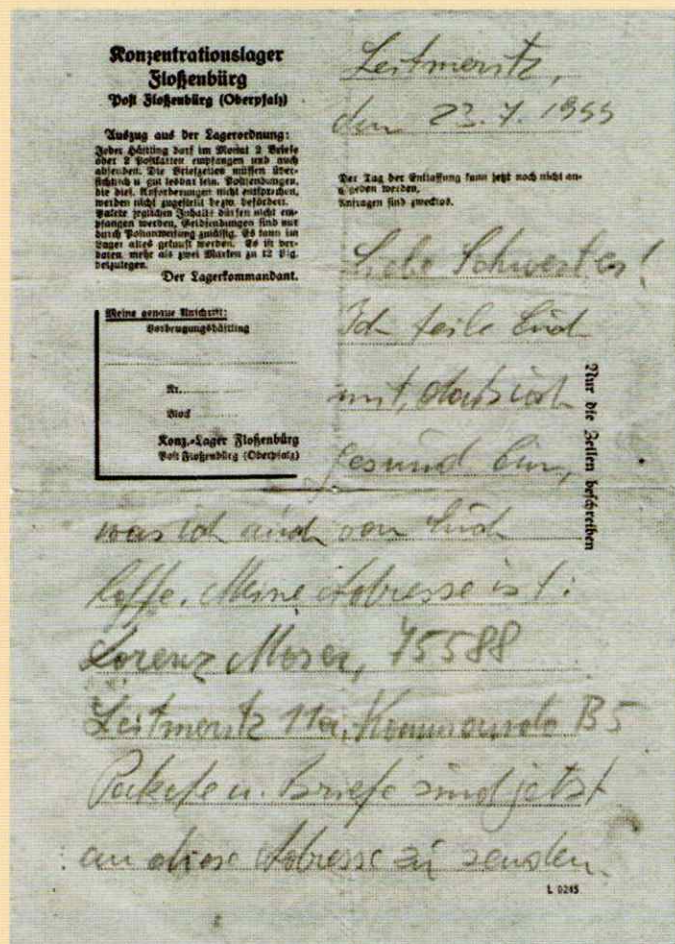 Konzentrationslager
Floßenbürg
Post Floßenbürg (Oberpfalz)
Auszug aus der Lagerordnung:
Jeder Häftling darf im Monat 2 Briefe
oder 2 Postkarten empfangen und auch
absenden. Die Briefzeilen müssen über-
sichtlich u gut lesbar sein. Postsendungen,
die dies. Anforderungen nicht entsprechen,
werden nicht zugestellt bezw. befördert.
Pakete jeglichen Inhalts dürfen nicht em-
pfangen werden, Geldsendungen sind nur
durch Postanweisung zulässig. Es kann im
Lager alles gekauft werden. Es ist ver-
boten, mehr als zwei Marken zu 12 Pfg.
beizulegen.
Der Lagerkommandant.
Meine genaue Anschrift:
Vorbeugungshäftling
Nr.
Block
Konz.-Lager Floßenbürg
Post Floßenbürg (Oberpfalz)
Leitmeritz,
den 23. 7. 1944
Der Tag der Entlassung kann jetzt noch nicht an-
gegeben werden.
Anfragen sind zwecklos.
Liebe Schwester!
Ich teile Euch
mit, daß ich
gesund bin,
was ich auch von Euch
hoffe. Meine Adresse ist:
Lorenz Moser, 75588
Leitmeritz 11a, Kommando B5
Pakete u. Briefe sind jetzt
an diese Adresse zu senden.
Nur die Zeilen beschreiben
L 0245